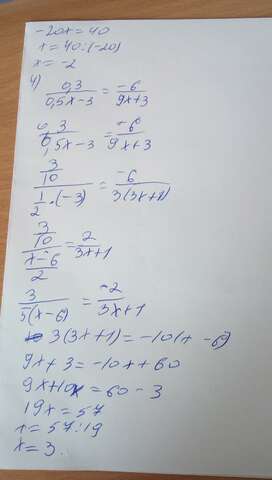 -20x = 40
x = 40:(-20)
x = -2
4) 0,3/(0,5x-3) = -6/(9x+3)
0,3/(0,5x-3) = -6/(9x+3)
(3/10)/(1/2·(-3)) = -6/(3(3x+1))
(3/10)/((x-6)/2) = 2/(3x+1)
3/(5(x-6)) = -2/(3x+1)
3(3x+1) = -10(x-6)
9x+3 = -10x+60
9x+10x = 60-3
19x = 57
x = 57:19
x = 3.